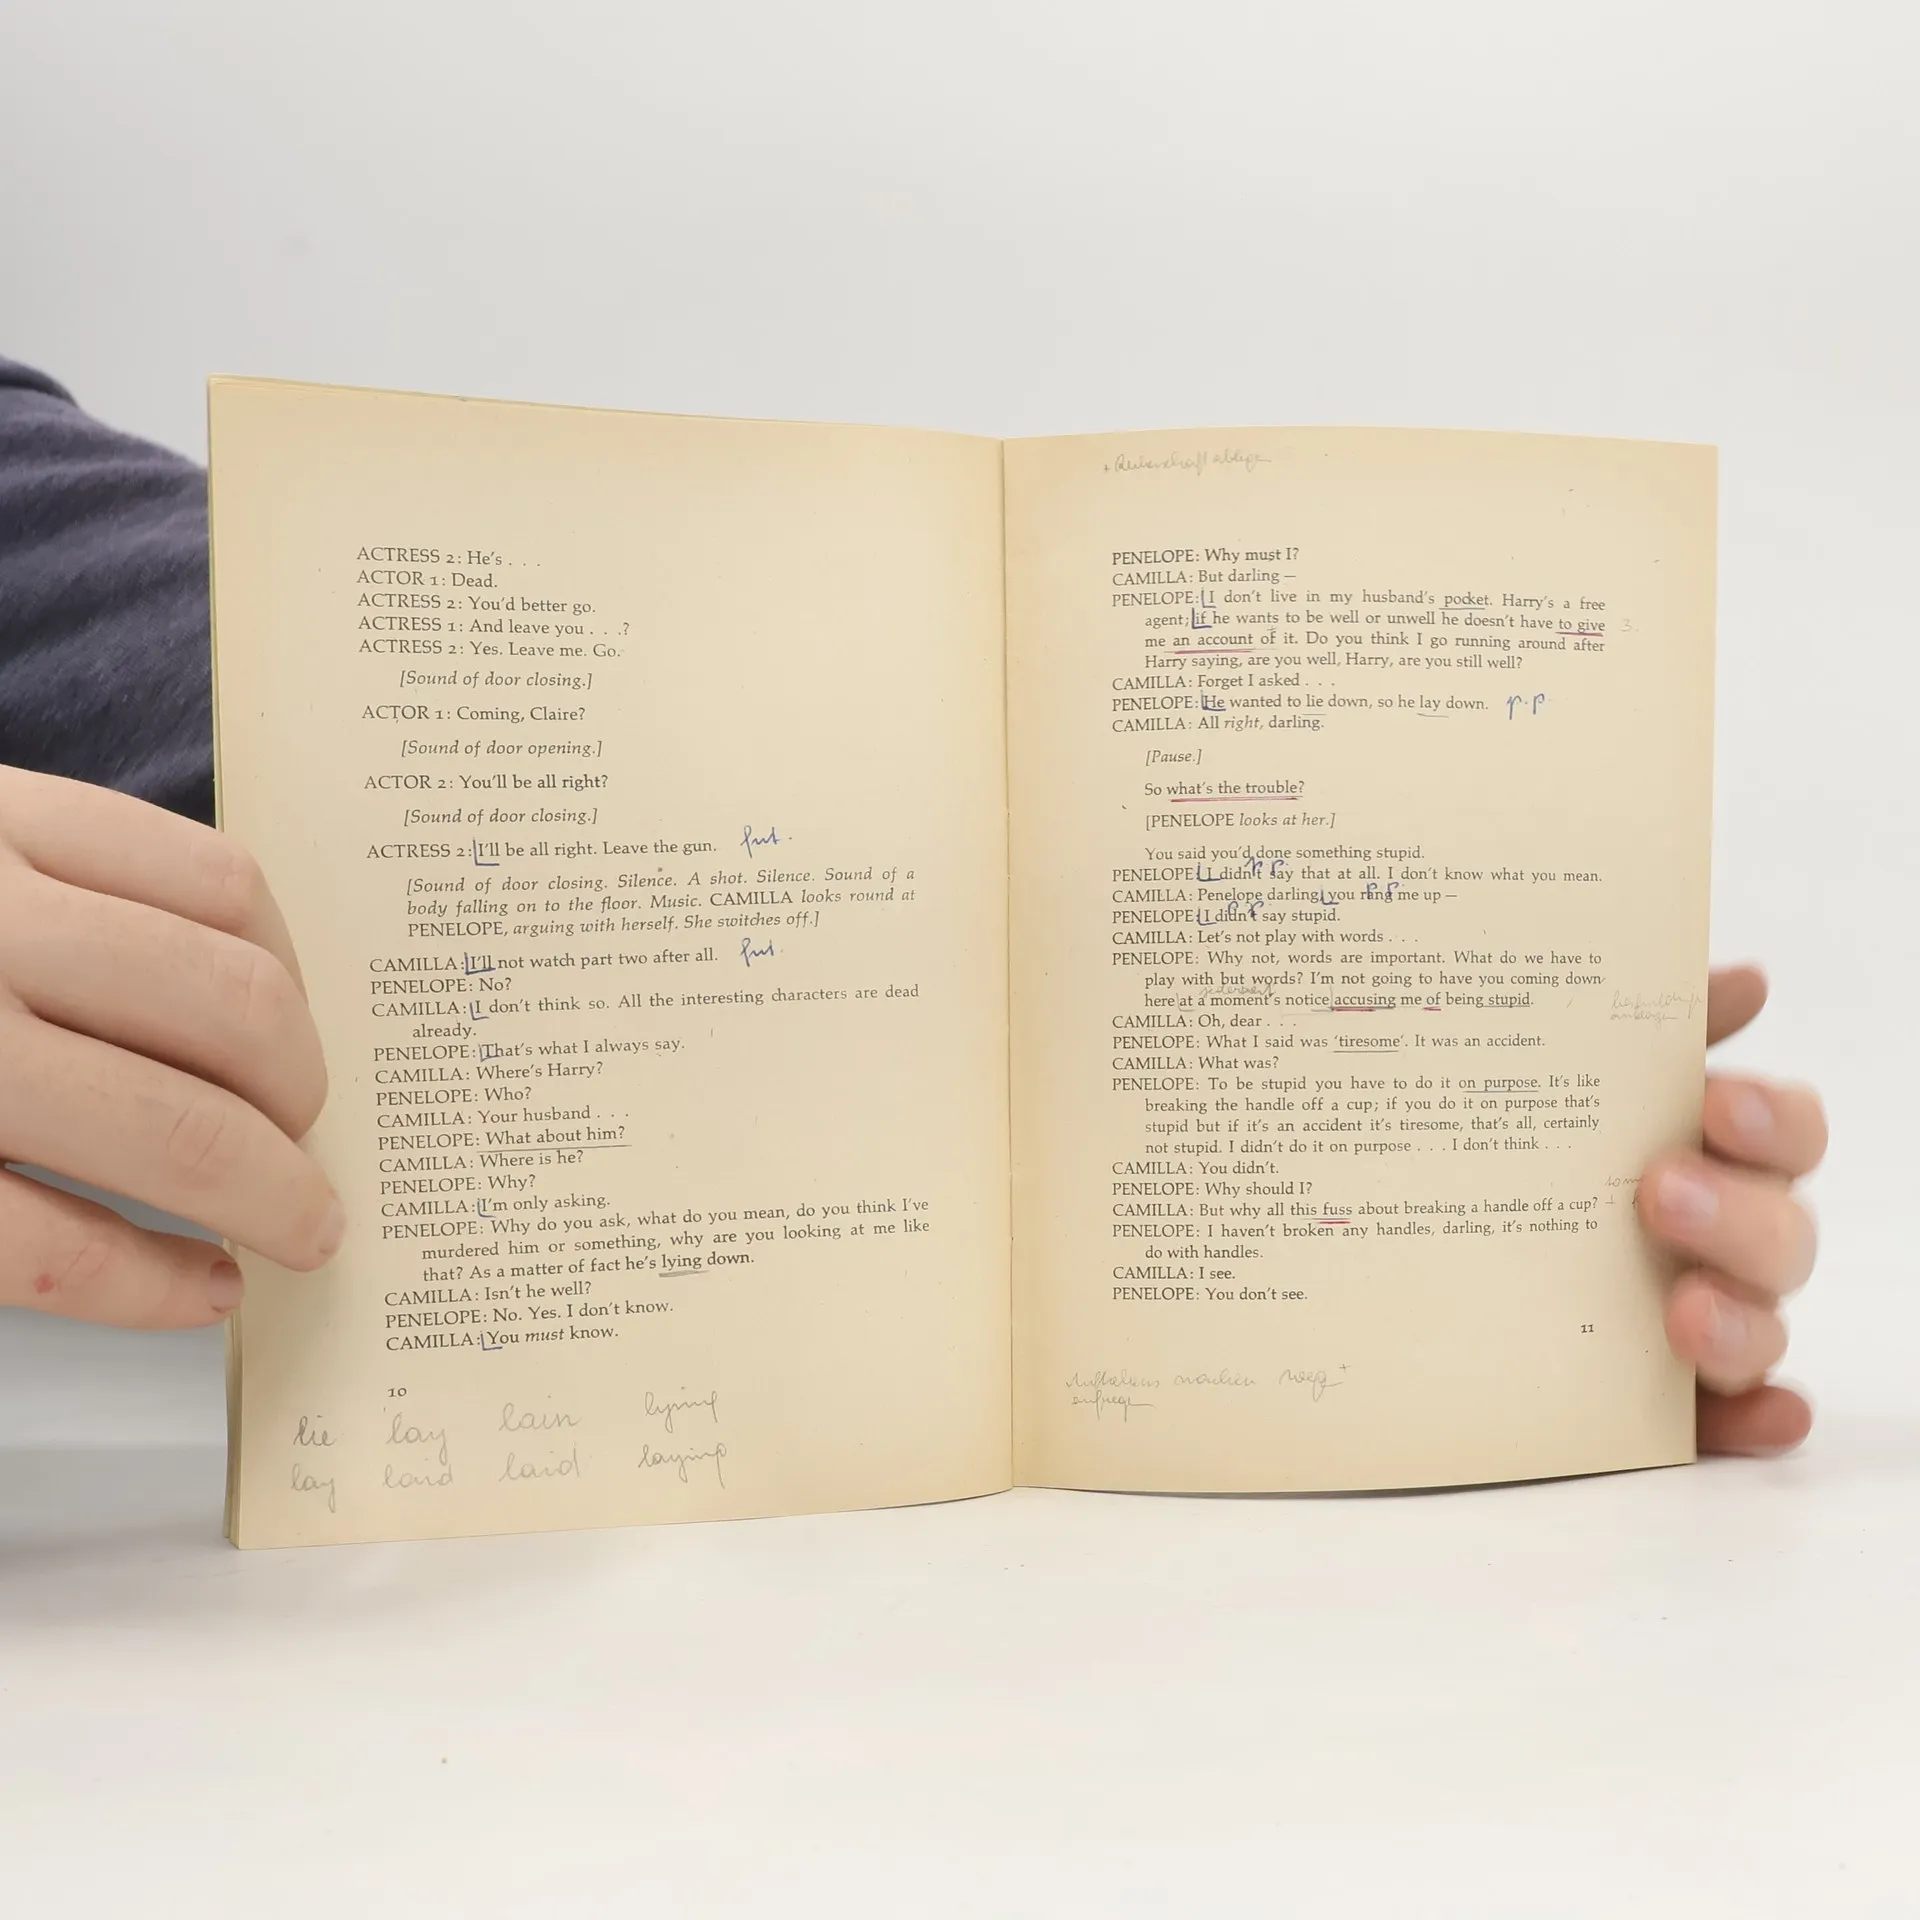 ACTRESS 2: He's . . .
ACTOR 1: Dead.
ACTRESS 2: You'd better go.
ACTRESS 1: And leave you . . .?
ACTRESS 2: Yes. Leave me. Go.
[Sound of door closing.]
ACTOR 1: Coming, Claire?
[Sound of door opening.]
ACTOR 2: You'll be all right?
[Sound of door closing.]
ACTRESS 2: I'll be all right. Leave the gun. fut.
[Sound of door closing. Silence. A shot. Silence. Sound of a
body falling on to the floor. Music. CAMILLA looks round at
PENELOPE, arguing with herself. She switches off.]
CAMILLA: I'll not watch part two after all. fut.
PENELOPE: No?
CAMILLA: I don't think so. All the interesting characters are dead
already.
PENELOPE: That's what I always say.
CAMILLA: Where's Harry?
PENELOPE: Who?
CAMILLA: Your husband . . .
PENELOPE: What about him?
CAMILLA: Where is he?
PENELOPE: Why?
CAMILLA: I'm only asking.
PENELOPE: Why do you ask, what do you mean, do you think I've
murdered him or something, why are you looking at me like
that? As a matter of fact he's lying down.
CAMILLA: Isn't he well?
PENELOPE: No. Yes. I don't know.
CAMILLA: You must know.
10
lie lay lain lying
lay laid laid laying
PENELOPE: Why must I?
CAMILLA: But darling —
PENELOPE: I don't live in my husband's pocket. Harry's a free
agent; if he wants to be well or unwell he doesn't have to give 3.
me an account of it. Do you think I go running around after
Harry saying, are you well, Harry, are you still well?
CAMILLA: Forget I asked . . .
PENELOPE: He wanted to lie down, so he lay down. p.p.
CAMILLA: All right, darling.
[Pause.]
So what's the trouble?
[PENELOPE looks at her.]
You said you'd done something stupid.
p p
PENELOPE: I didn't say that at all. I don't know what you mean.
CAMILLA: Penelope darling, you rang me up —
PENELOPE: I didn't say stupid.
CAMILLA: Let's not play with words . . .
PENELOPE: Why not, words are important. What do we have to
play with but words? I'm not going to have you coming down
here at a moment's notice accusing me of being stupid.
CAMILLA: Oh, dear . . .
PENELOPE: What I said was 'tiresome'. It was an accident.
CAMILLA: What was?
PENELOPE: To be stupid you have to do it on purpose. It's like
breaking the handle off a cup; if you do it on purpose that's
stupid but if it's an accident it's tiresome, that's all, certainly
not stupid. I didn't do it on purpose . . . I don't think . . .
CAMILLA: You didn't.
PENELOPE: Why should I?
CAMILLA: But why all this fuss about breaking a handle off a cup?
PENELOPE: I haven't broken any handles, darling, it's nothing to
do with handles.
CAMILLA: I see.
PENELOPE: You don't see.
11